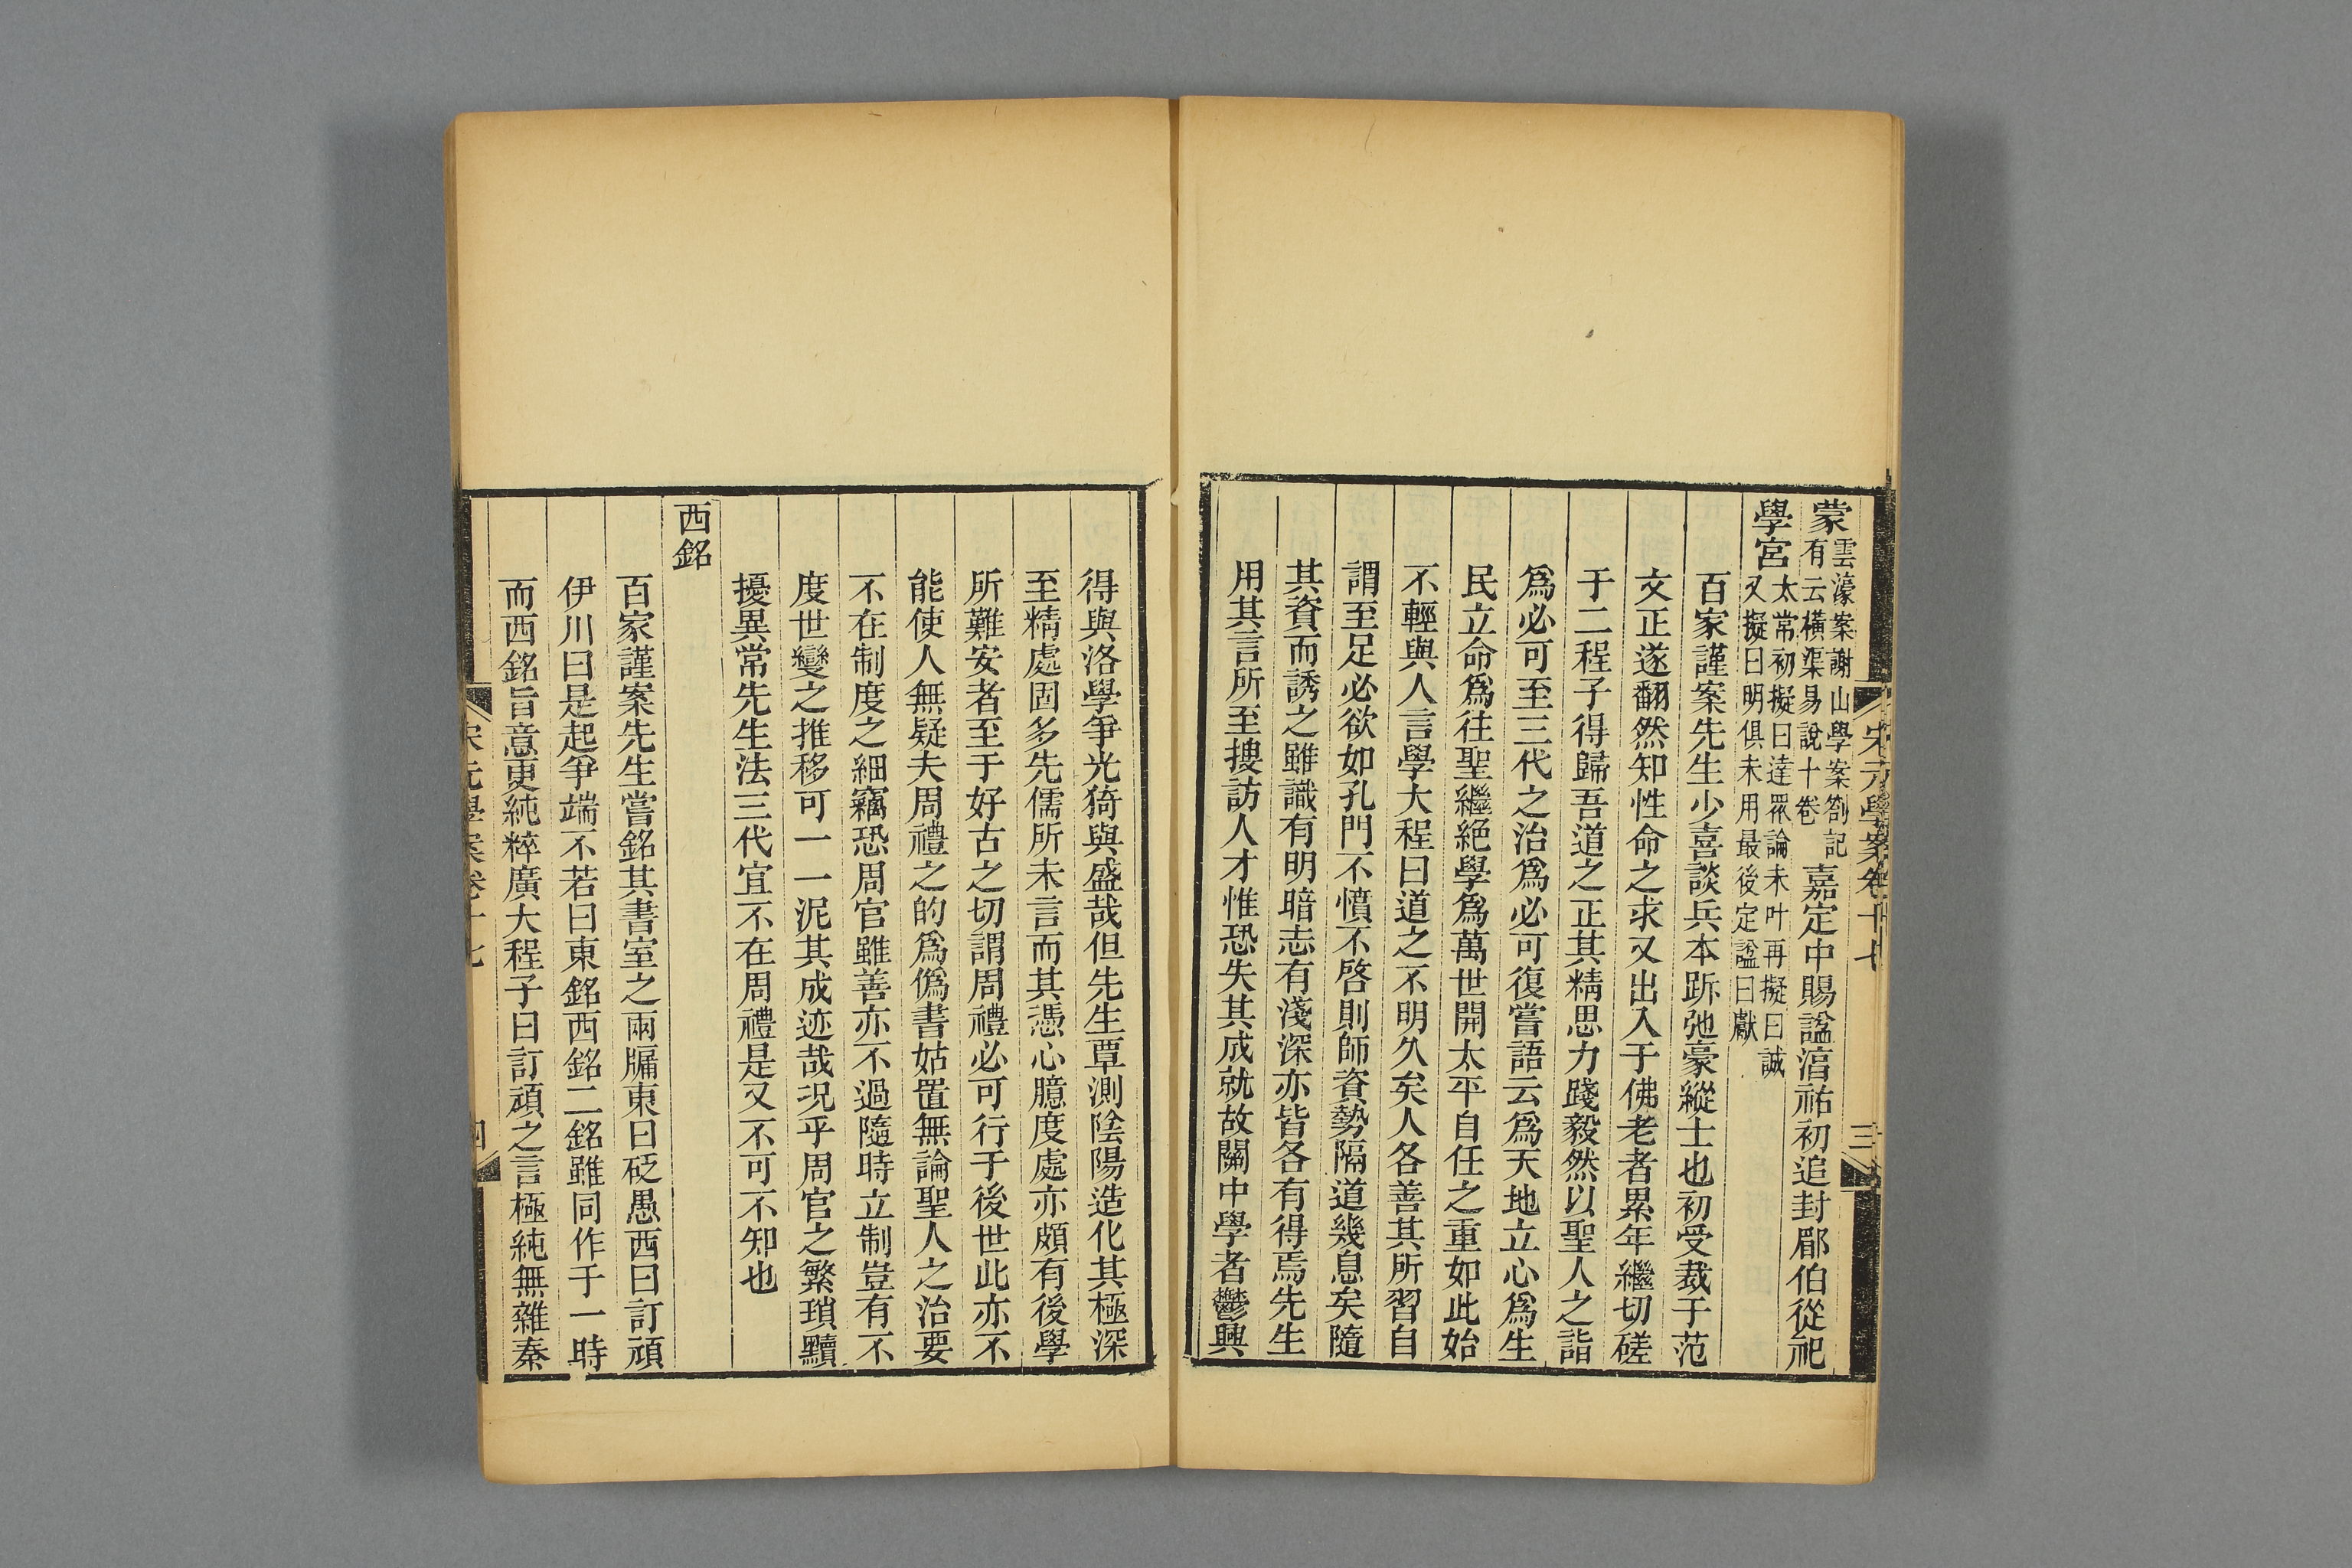 宋元學案卷十七
三
蒙雲濠案謝山學案劄記有云橫渠易說十卷嘉定中賜諡淯祐初追封郿伯從祀
學宮太常初擬曰達眾論未叶再擬曰誠又擬曰明俱未用最後定諡曰獻
百家謹案先生少喜談兵本跅弛豪縱士也初受裁于范
文正遂翻然知性命之求又出入于佛老者累年繼切磋
于二程子得歸吾道之正其精思力踐毅然以聖人之詣
爲必可至三代之治爲必可復嘗語云爲天地立心爲生
民立命爲往聖繼絕學爲萬世開太平自任之重如此始
不輕與人言學大程曰道之不明久矣人各善其所習自
謂至足必欲如孔門不憤不啓則師資勢隔道幾息矣隨
其資而誘之雖識有明暗志有淺深亦皆各有得焉先生
用其言所至搜訪人才惟恐失其成就故關中學者鬱興
得與洛學爭光猗與盛哉但先生覃測陰陽造化其極深
至精處固多先儒所未言而其憑心臆度處亦頗有後學
所難安者至于好古之切謂周禮必可行于後世此亦不
能使人無疑夫周禮之的爲僞書姑置無論聖人之治要
不在制度之細竊恐周官雖善亦不過隨時立制豈有不
度世變之推移可一一泥其成迹哉況乎周官之繁瑣黷
擾異常先生法三代宜不在周禮是又不可不知也
西銘
百家謹案先生嘗銘其書室之兩牖東曰砭愚西曰訂頑
伊川曰是起爭端不若曰東銘西銘二銘雖同作于一時
而西銘旨意更純粹廣大程子曰訂頑之言極純無雜秦
宋元學案卷十七
四